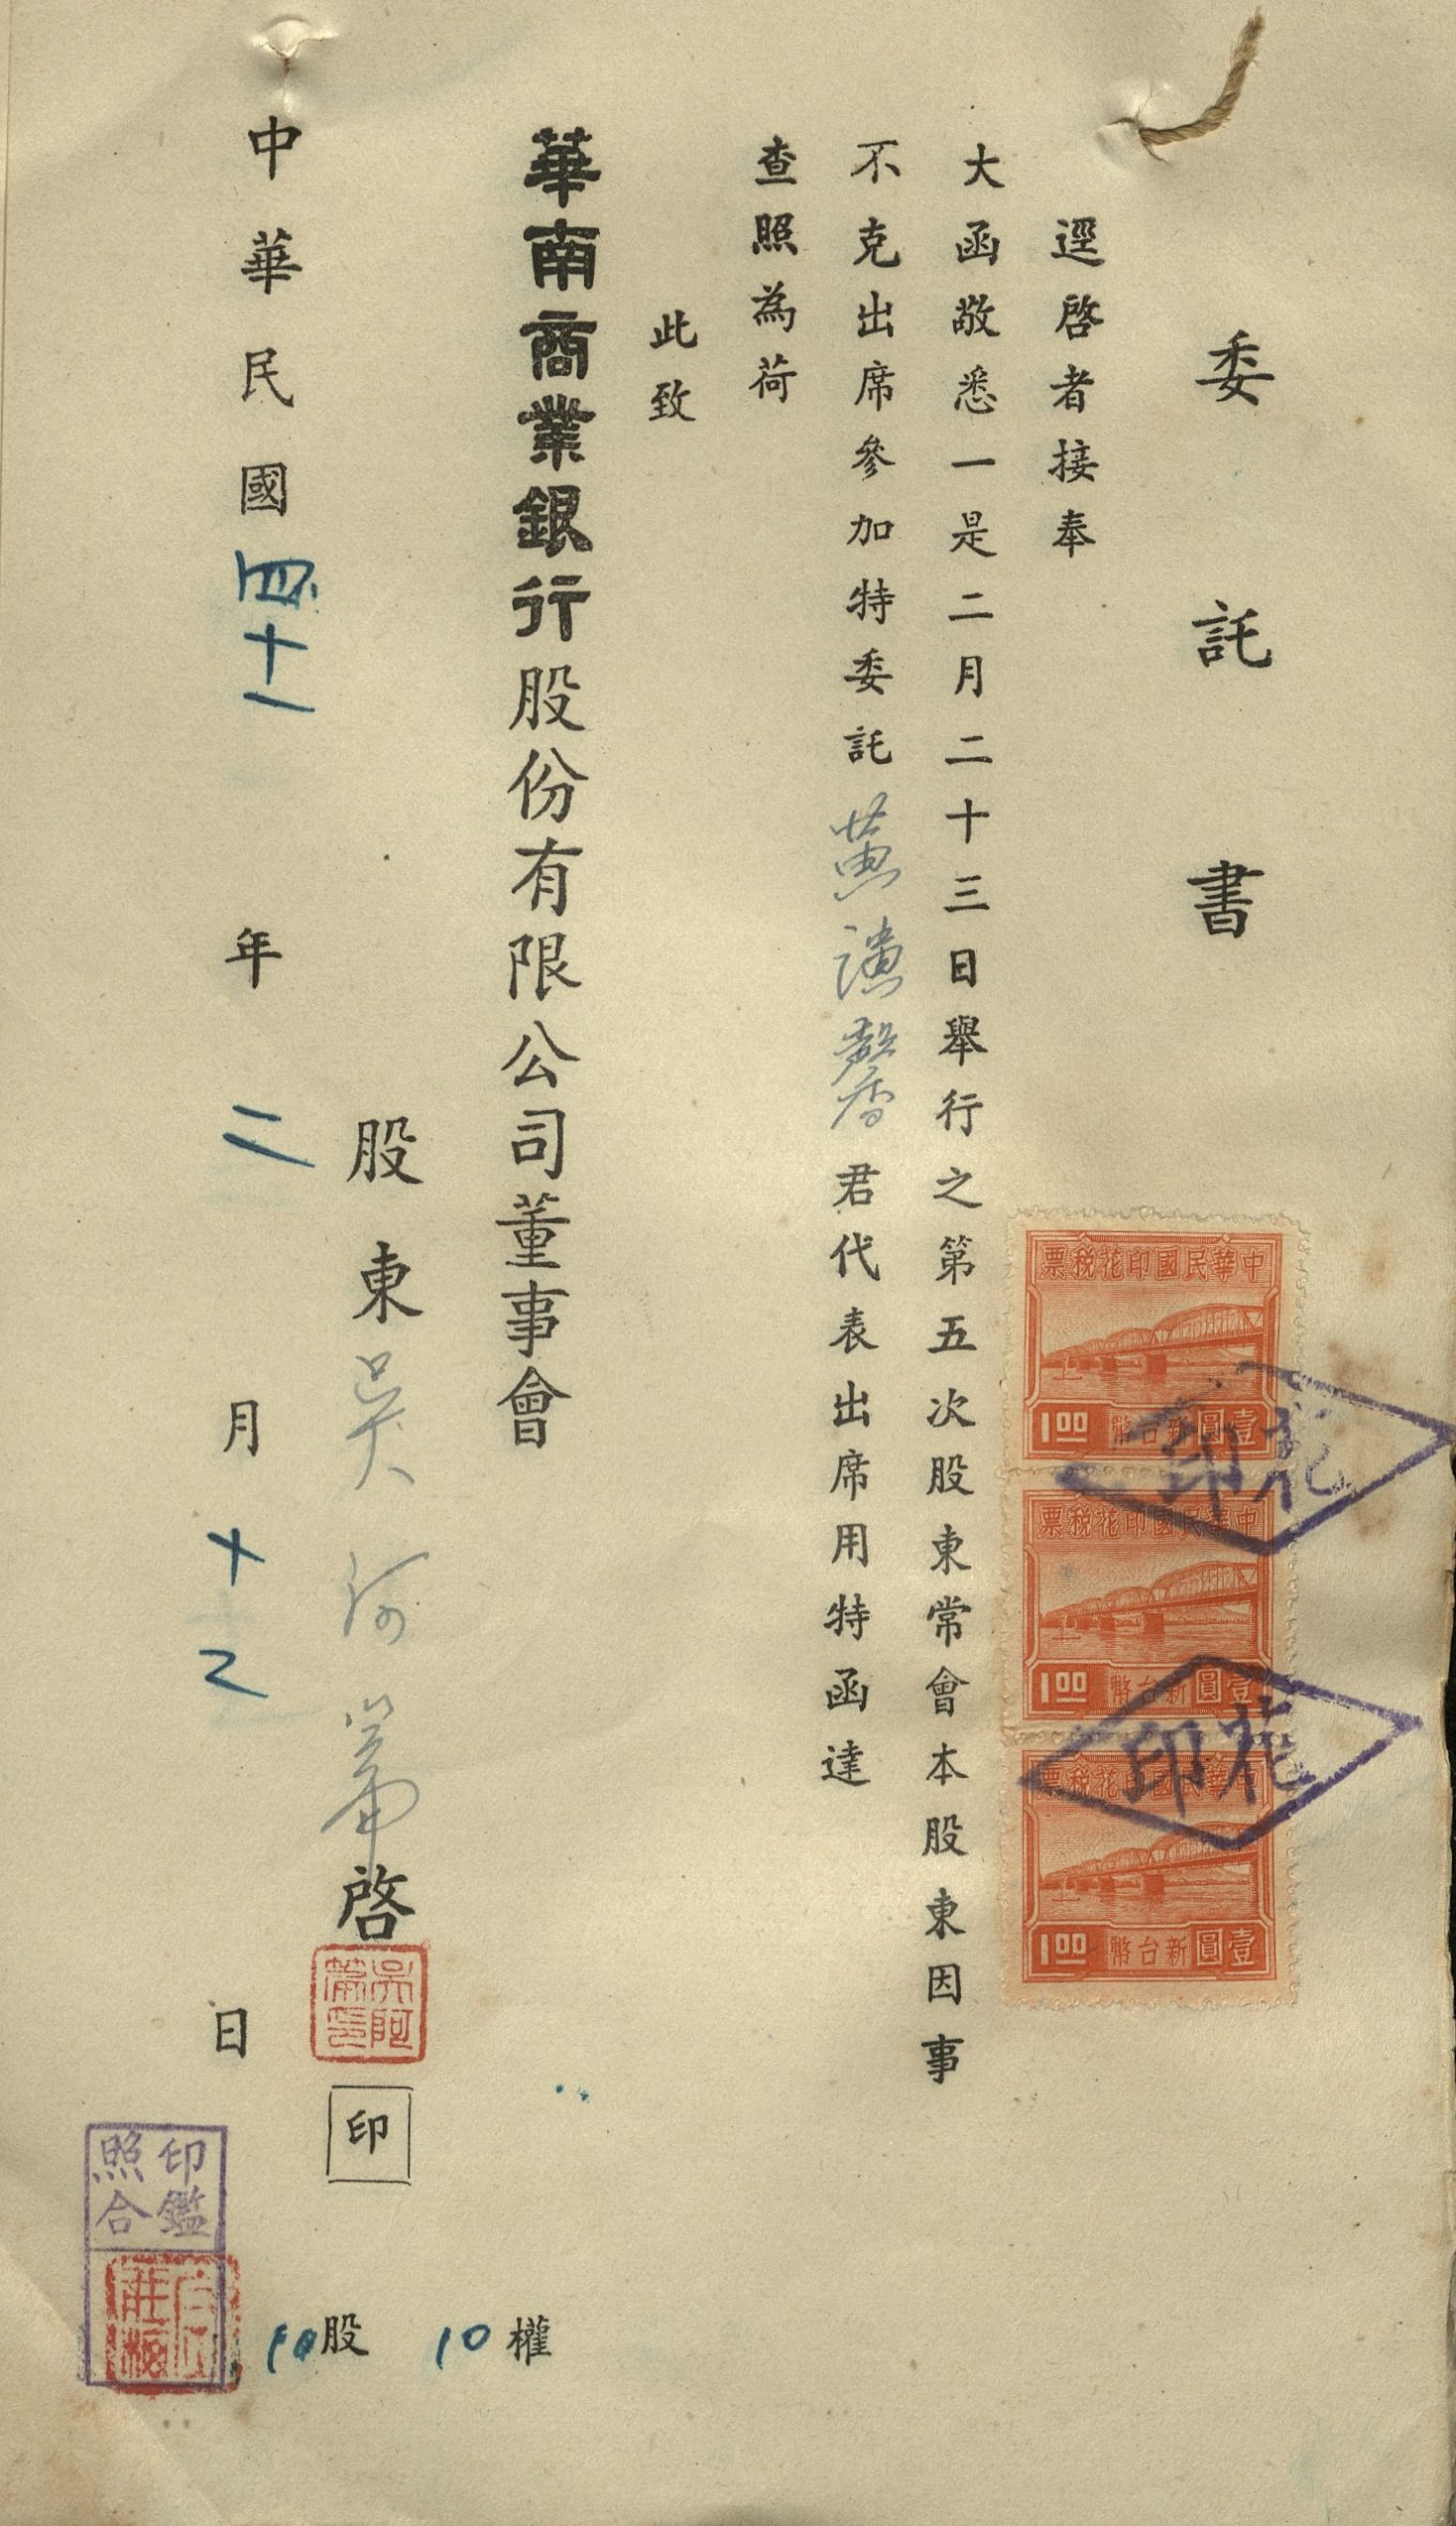 委託書
逕啓者接奉
大函敬悉一是二月二十三日舉行之第五次股東常會本股東因事
不克出席參加特委託黃謙馨君代表出席用特函達
查照為荷
此致
華南商業銀行股份有限公司董事會
股東吳阿㨃啓
印
中華民國四十一年二月十二日
10股 10權
中華民國印花稅票
1.00 新台幣壹圓
中華民國印花稅票
1.00 新台幣壹圓
中華民國印花稅票
1.00 新台幣壹圓
花印
印鑑照合